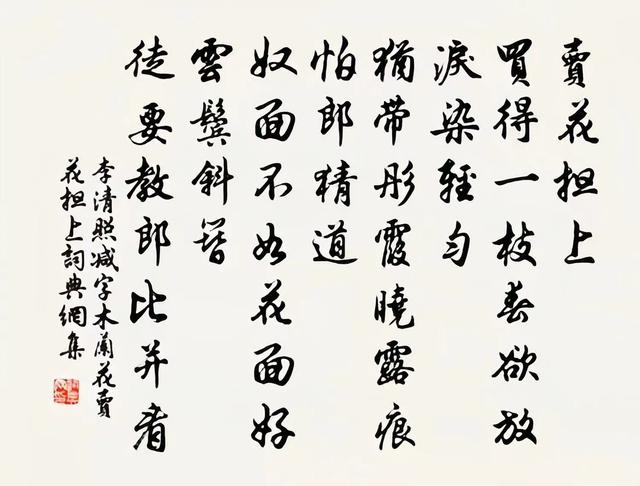 賣花担上
買得一枝春欲放
淚染輕勻
猶带彤霞曉露痕
怕郎猜道
奴面不如花面好
雲鬢斜簪
徒要教郎比并看
李清照减字木蘭花賣
花担上詞典網集